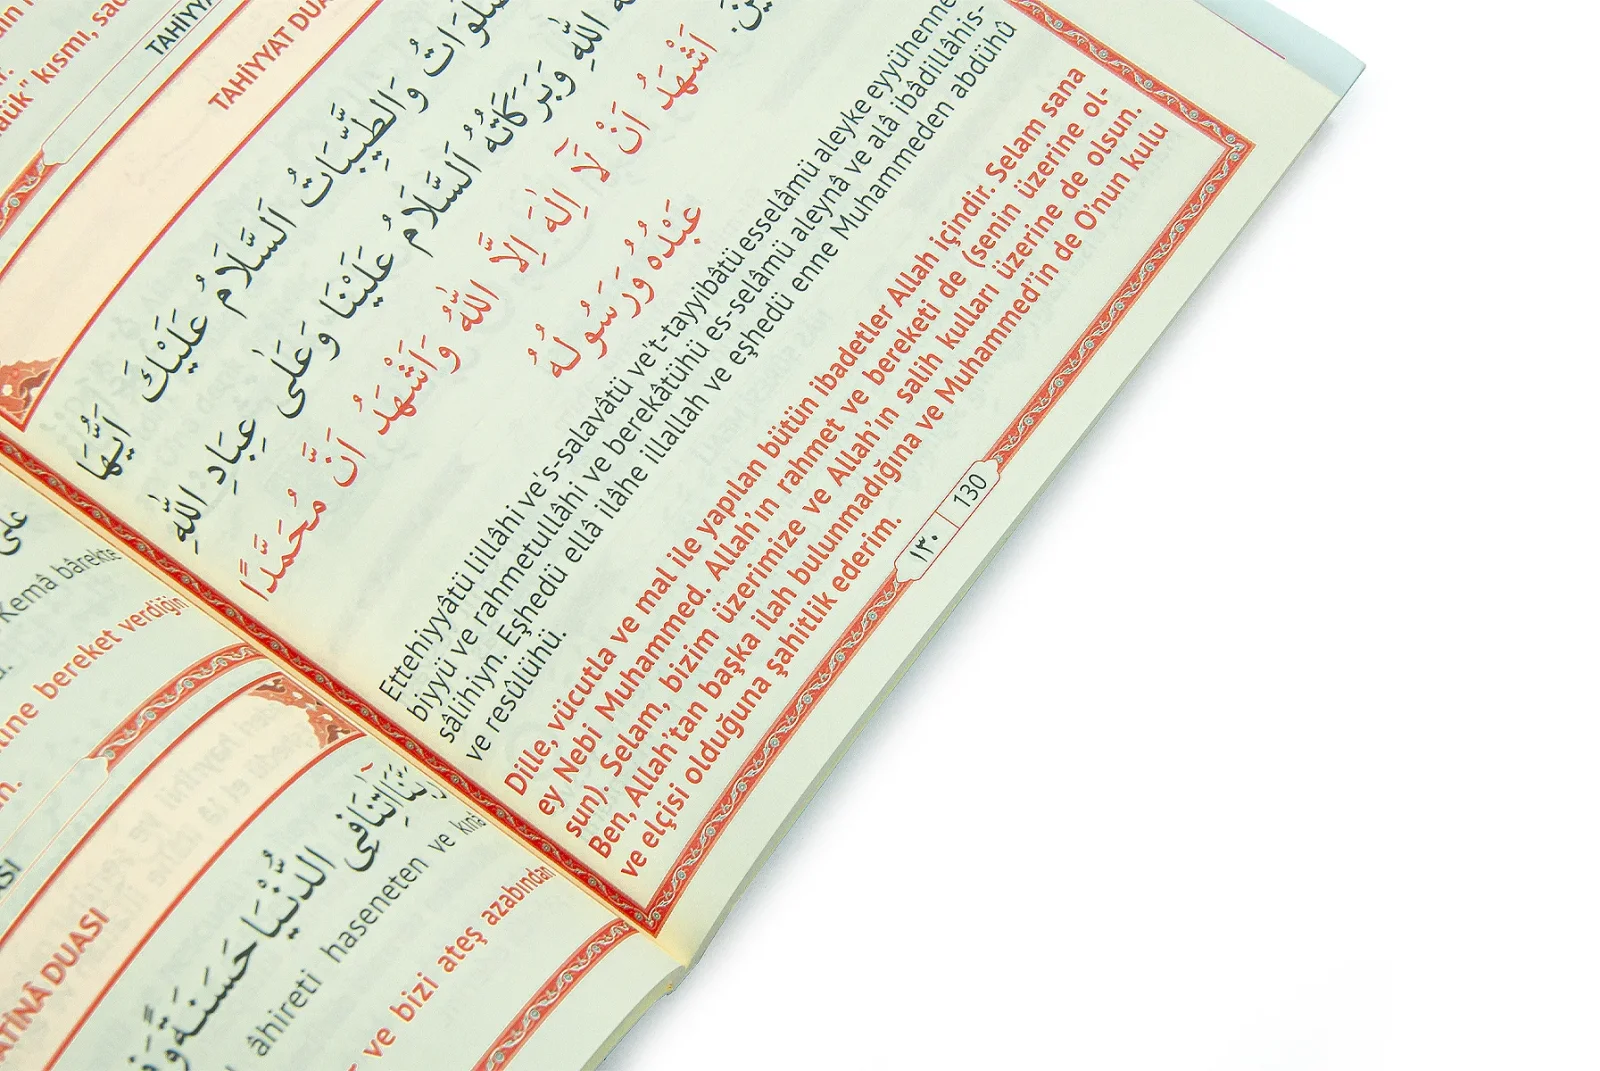 TAHİYYAT DUA
صَّلَوَاتُ وَالطَّيِّبَاتُ اَلسَّلَامُ عَلَيْكَ اَيُّهَا
اللّٰهِ وَبَرَكَاتُهُ اَلسَّلَامُ عَلَيْنَا وَعَلٰى عِبَادِ اللّٰهِ
اَشْهَدُ اَنْ لَآ اِلٰهَ اِلَّا اللّٰهُ وَاَشْهَدُ اَنَّ مُحَمَّدًا
عَبْدُهُ وَرَسُولُهُ
Ettehiyyâtü lillâhi ve's-salavâtü ve't-tayyibâtü esselâmü aleyke eyyühenne
biyyü ve rahmetullâhi ve berekâtühü es-selâmü aleynâ ve alâ ibâdillâhis-
sâlihiyn. Eşhedü ellâ ilâhe illallah ve eşhedü enne Muhammeden abdühû
ve resûlühü.
Dille, vücutla ve mal ile yapılan bütün ibadetler Allah içindir. Selam sana
ey Nebi Muhammed. Allah'ın rahmet ve bereketi de (senin üzerine ol-
sun). Selam, bizim üzerimize ve Allah'ın salih kulları üzerine de olsun.
Ben, Allah'tan başka ilah bulunmadığına ve Muhammed'in de O'nun kulu
ve elçisi olduğuna şahitlik ederim.
١٣٠ 130
TAHİYYA
dük" kısmı,
على
Kemâ bârekte
bereket verdiğin
ATİNÂ DUASI
رَبَّنَا اٰتِنَا فِى الدُّنْيَا حَسَنَةً وَ
âhireti haseneten ve kınâ
ve bizi ateş azabından